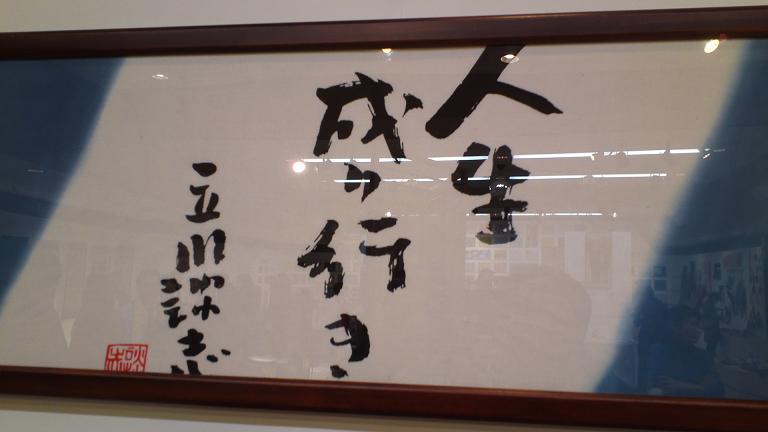 人生
成り行き
立川談志
談志